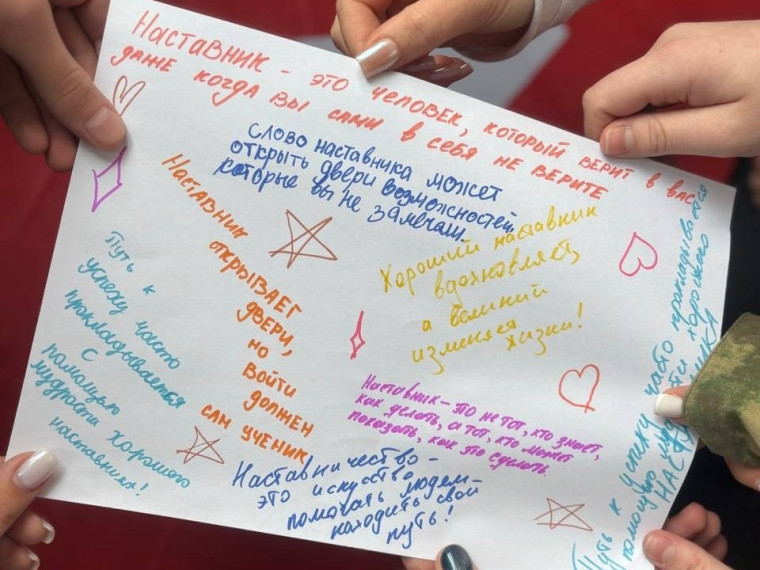 Наставник - это человек, который верит в вас,
даже когда вы сами в себя не верите
Слово наставника может
открыть двери возможностей,
которые вы не замечали.
Наставник
открывает
двери,
но
войти
должен
сам ученик
Хороший наставник
вдохновляет,
а великий
изменяет
жизни!
Путь к
успеху часто
прокладывается
с
помощью
мудрости хорошего
наставника!
Наставник - это не тот, кто знает,
как делать, а тот, кто может
показать, как это сделать.
Наставничество -
это искуство
помогать людем -
находить свой
путь!
Путь к успеху часто прокладывается
помощью хорошего
НАСТАВНИКА